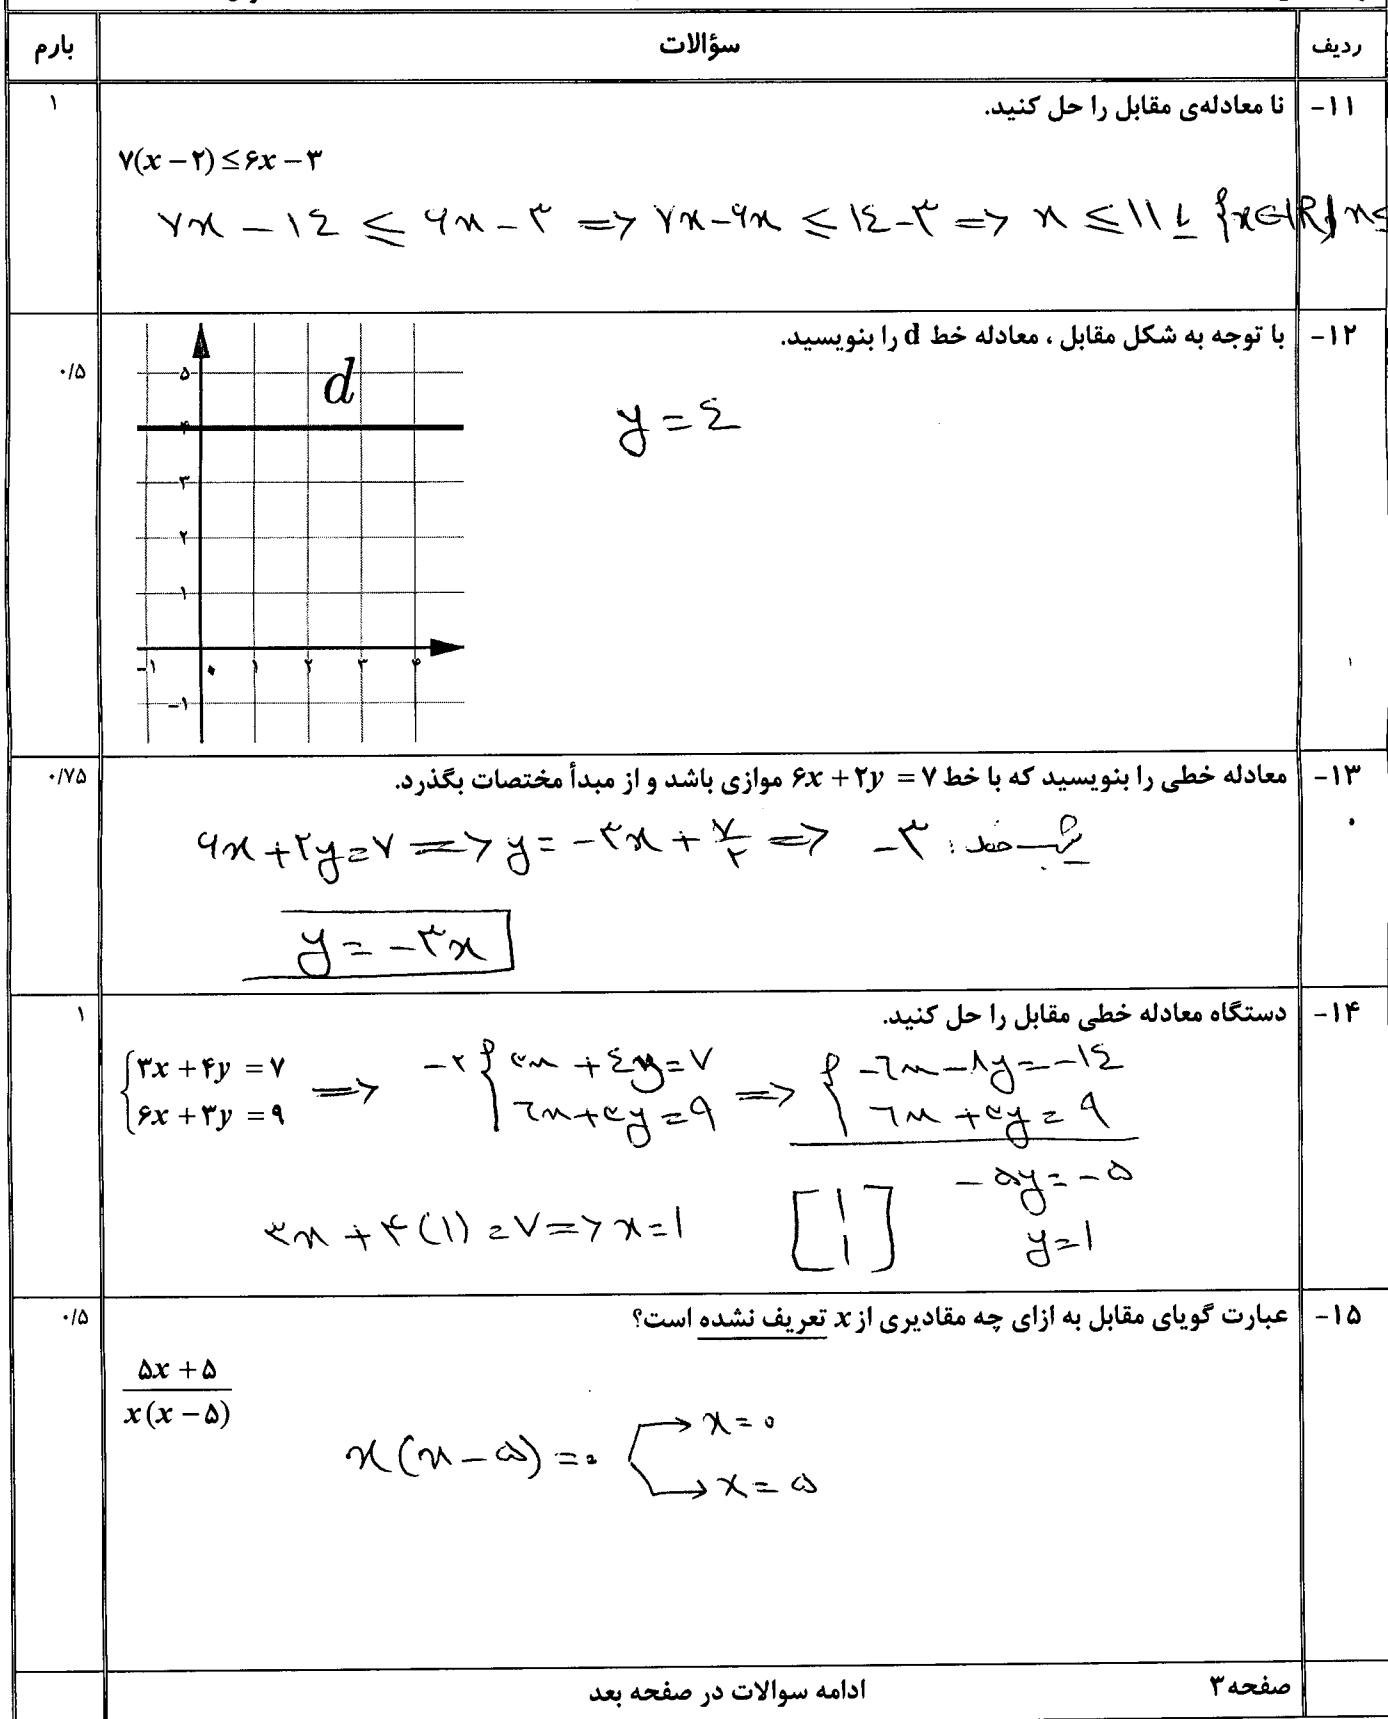 ردیف سؤالات بارم
۱۱- نا معادله‌ی مقابل را حل کنید. ۱
۷(x-۲)≤۶x-۳
۷x - ۱٤ ≤ ۶x - ۳ => ۷x-۶x ≤ ۱٤-۳ => x ≤ ۱۱ یا {x∈IR| x≤
۱۲- با توجه به شکل مقابل ، معادله خط d را بنویسید. ۰/۵
d
۵
۴
۳
۲
۱
-۱ ۰ ۱ ۲ ۳ ۴
-۱
y = ٤
۱۳- معادله خطی را بنویسید که با خط ۶x + ۲y = ۷ موازی باشد و از مبدأ مختصات بگذرد. ۰/۷۵
۶x + ۲y = ۷ => y = -۳x + ۷/۲ => -۳ : شیب خط
y = -۳x
۱۴- دستگاه معادله خطی مقابل را حل کنید. ۱
{۳x + ۴y = ۷ => -۲{۳x + ٤y = ۷ => {-۶x - ۸y = -۱٤
۶x + ۳y = ۹ ۶x + ۳y = ۹ ۶x + ۳y = ۹
-۵y = -۵
۳x + ۴(۱) = ۷ => x = ۱ [۱ ۱] y = ۱
۱۵- عبارت گویای مقابل به ازای چه مقادیری از x تعریف نشده است؟ ۰/۵
۵x + ۵
x(x - ۵)
x(x - ۵) = ۰ → x = ۰
→ x = ۵
صفحه۳ ادامه سوالات در صفحه بعد